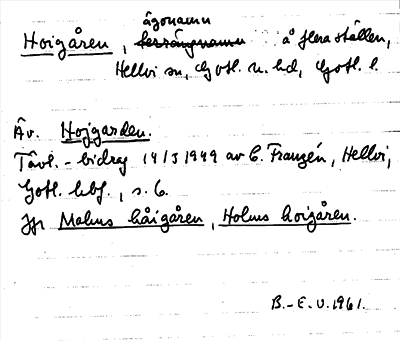 ägonamn
Hoigåren, terrängnamn å flera ställen,
Hellvi sn, Gotl. n. hd, Gotl. l.
Äv. Hojgarden.
Tävl.-bidrag 14/5 1949 av C. Franzén, Hellvi,
Gotl. hbf., s. 6.
Jfr Malms håigåren, Holms hoigåren.
B.-E. U. 1961.